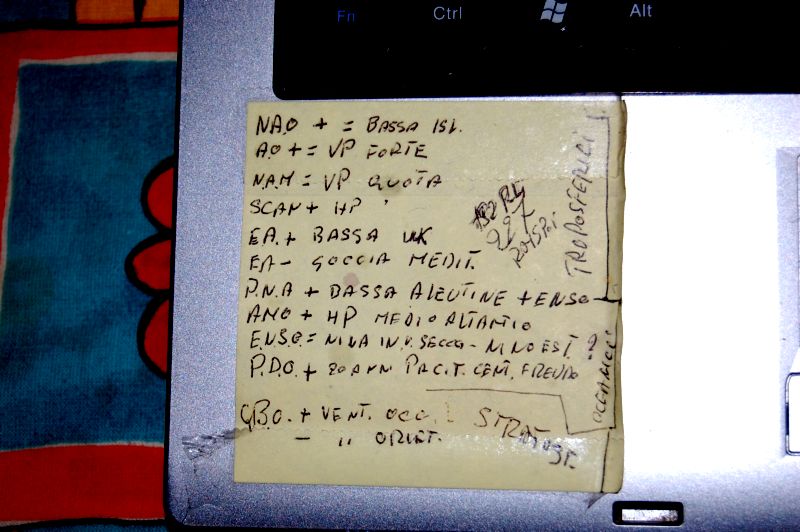 Fn Ctrl Alt
NAO + = BASSA ISL.
AO + = VP FORTE
NAM = VP QUOTA
SCAN + HP
EA. + BASSA UK
EA - GOCCIA MEDIT.
P.N.A + BASSA ALEUTINE + ENSO
AMO + HP MEDIO ALTANTIO
E.N.S.O. = NINA INV. SECCO - NINO EST. ?
P.D.O. + 20 ANNI PACIT. CENT. FREDDO
Q.B.O. + VENT. OCC. STRATOSF.
- " ORIET.
TROPOSFERICI
OCEANICI